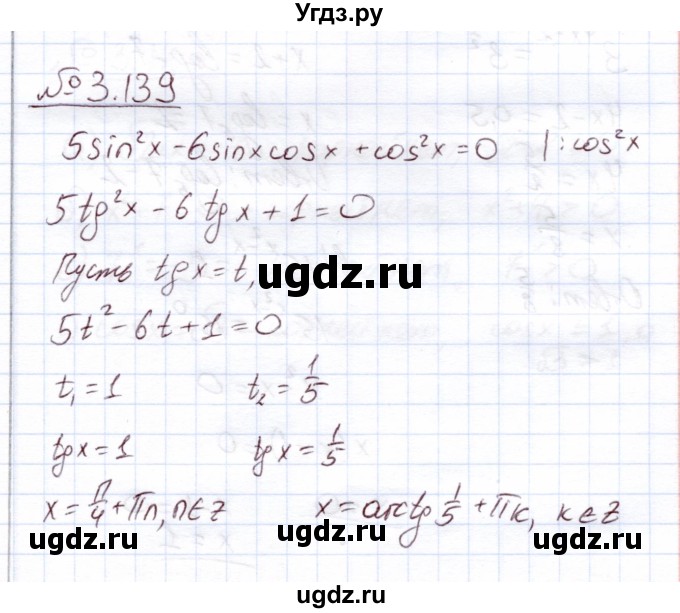 Угдз.ру
№ 3.139
5sin²x - 6sinxcosx + cos²x = 0 | : cos²x
5tg²x - 6 tg x + 1 = 0
Пусть tg x = t,
ugdz.ru ugdz.ru
5t² - 6t + 1 = 0
t₁ = 1 t₂ = 1/5
tg x = 1 tg x = 1/5
x = π/4 + πn, n ∈ Z x = arctg 1/5 + πk, k ∈ Z
ugdz.ru ugdz.ru ugdz.ru
ugdz.ru